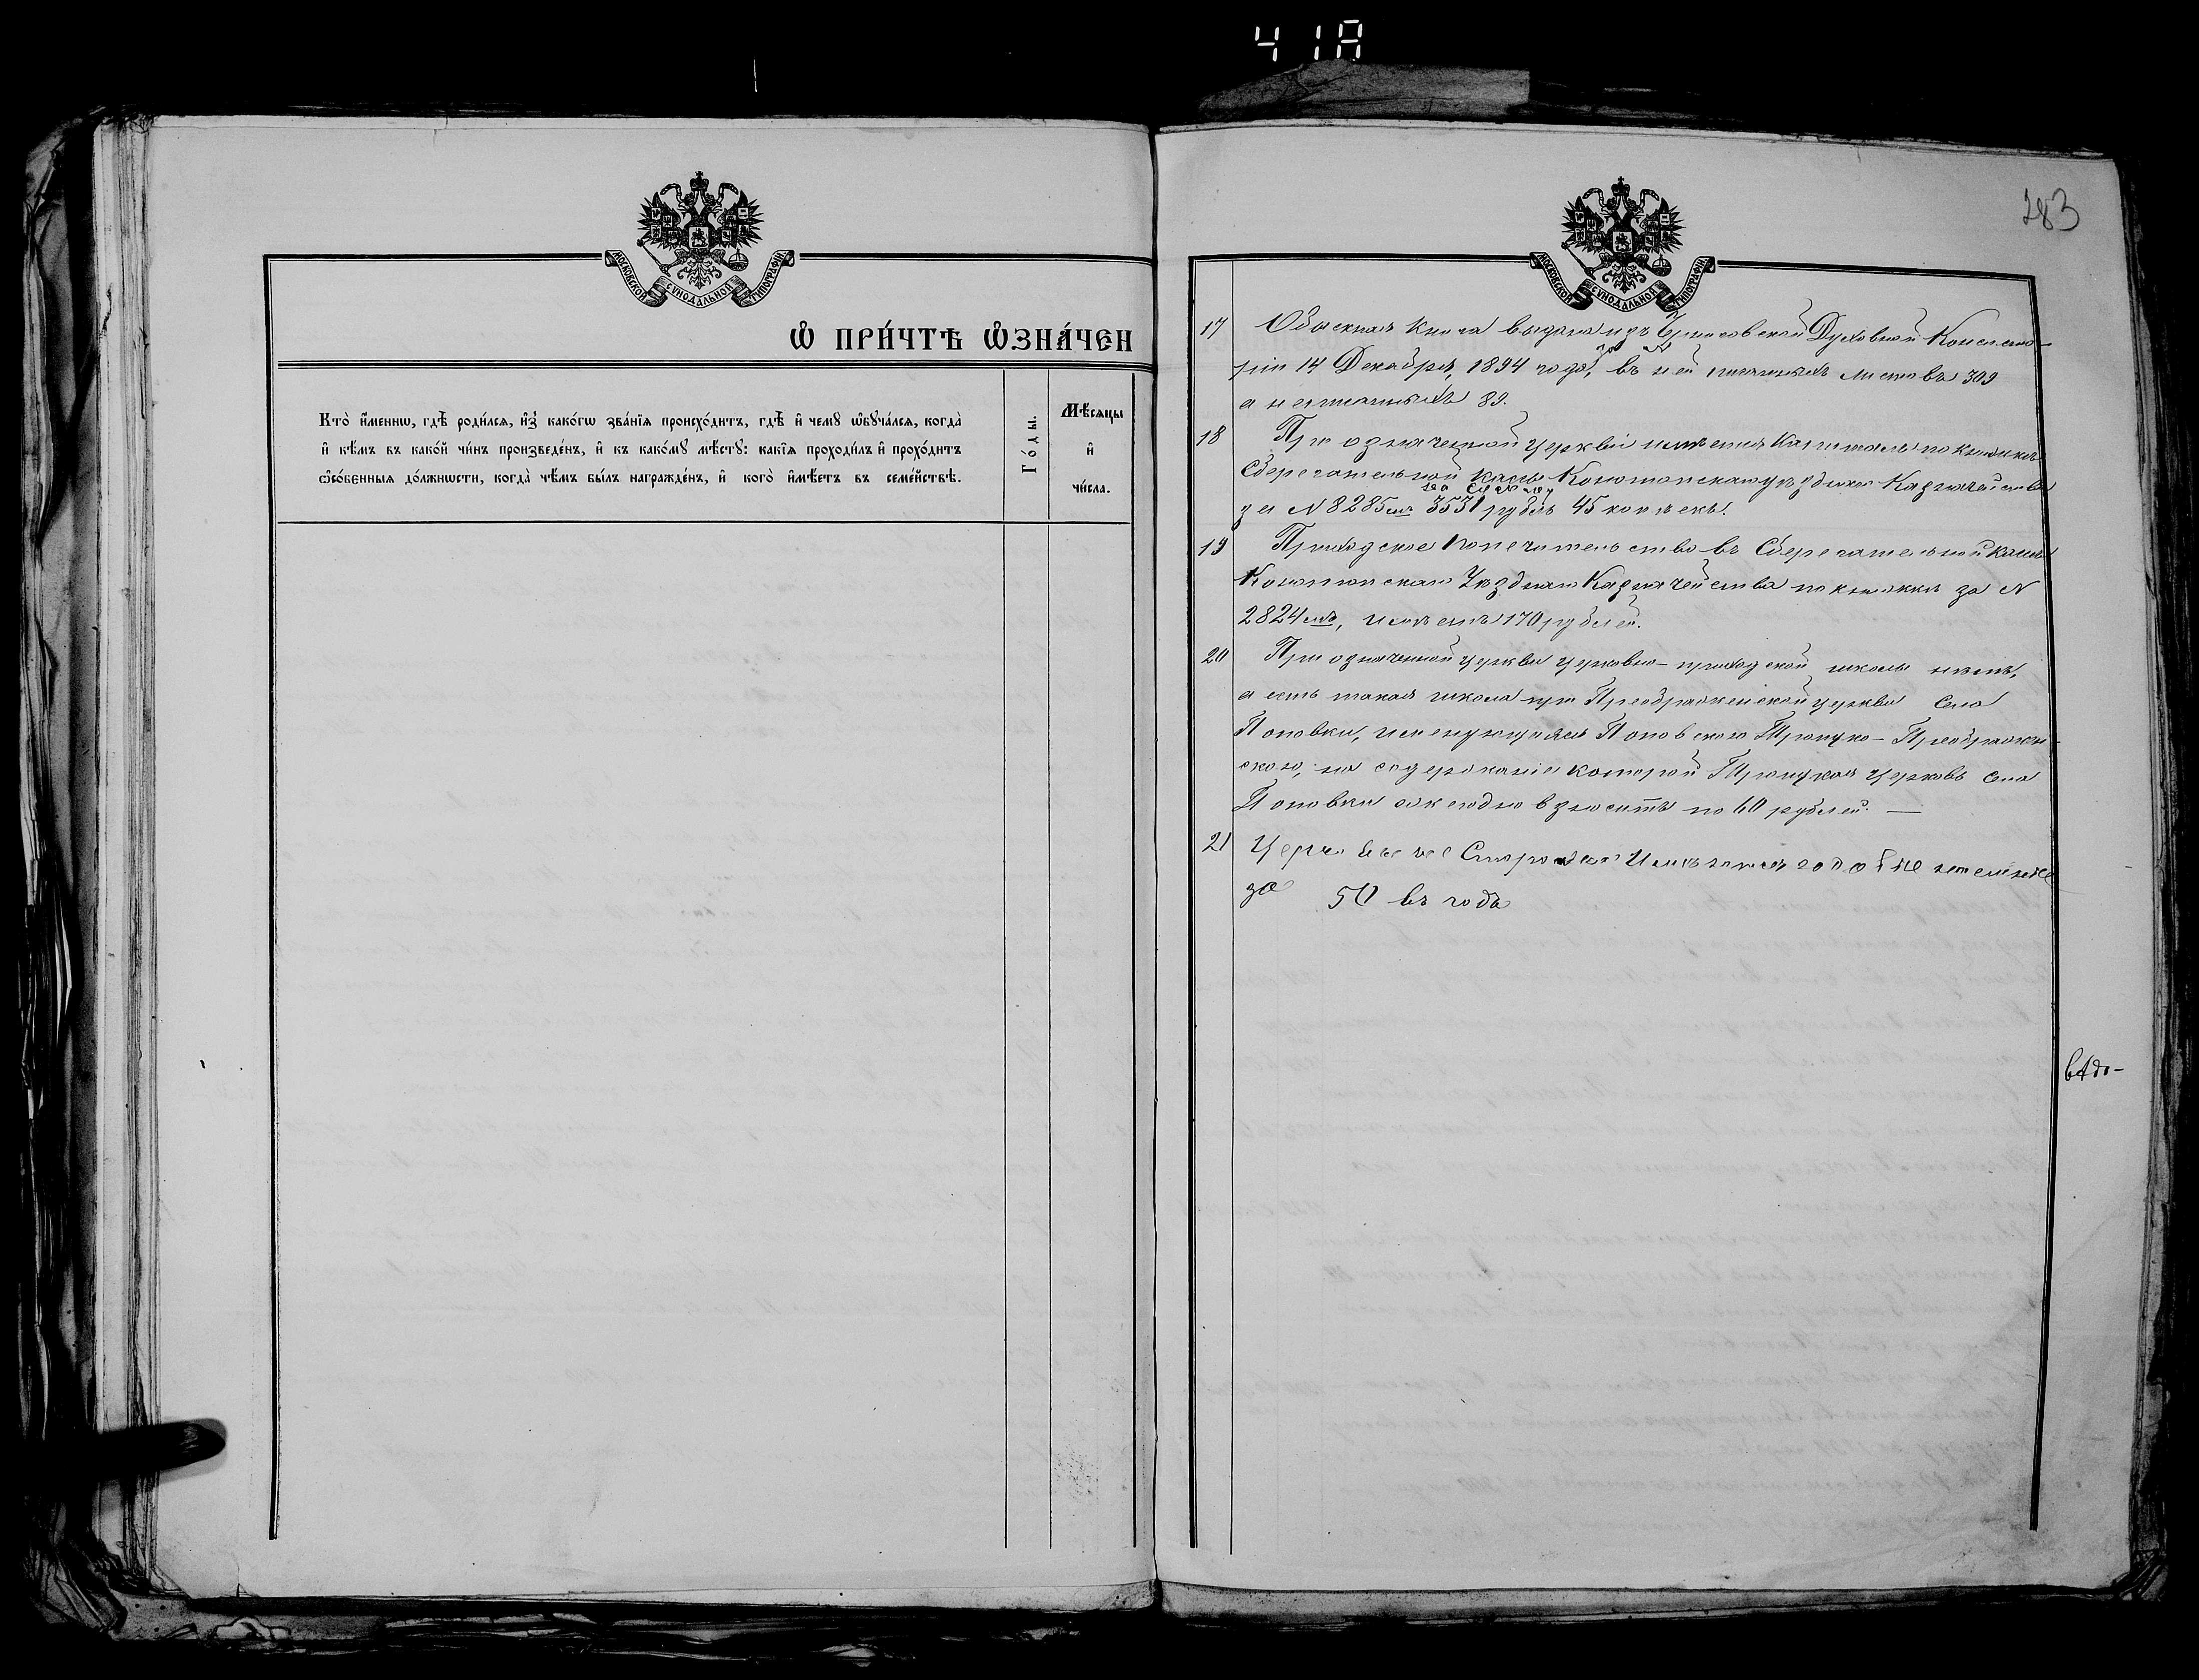 41А
МОСКОВСКОЙ СѴНОДАЛЬНОЙ ТИПОГРАФІИ
Ѡ ПРИ́ЧТѢ ѠЗНА́ЧЕН
Кто̀ и҆́меннѡ, гдѣ̀ роди́лсѧ, и҆з̾ како́гѡ зва́нїѧ происхо́дитъ, гдѣ̀ и҆ чемꙋ̀ ѡ҆бꙋча́лсѧ, когда̀
и҆ кѣ́мъ въ како́й чи́нъ произведе́нъ, и҆ къ како́мꙋ мѣ́стꙋ: какі̑ѧ проходи́лъ и҆ прохо́дитъ
ѻ҆со́бенныѧ до́лжнѡсти, когда̀ чѣ́мъ бы́лъ награжде́нъ, и҆ кого̀ и҆мѣ́етъ въ семе́йствѣ.
Го́ды.
Мѣ́сѧцы
и҆
чи́сла.
283
МОСКОВСКОЙ СѴНОДАЛЬНОЙ ТИПОГРАФІИ
17 Обыскная книга выдана изъ Черниговской Духовной Консисто-
ріи 14 Декабря, 1894 года, въ ней писанныхъ листовъ 309
а неписанныхъ 89.
18 При означенной церкви имѣется Капиталъ по книжкѣ
Сберегательной кассы Конотопскаго уѣзднаго Казначейства
на сумму
за N 8285мъ 3531 рубль 45 копѣекъ.
19 Приходское попечительство въ Сберегательной кассѣ
Конотопскаго Уѣзднаго Казначейства по книжкѣ за N
2824мъ, имѣетъ 170 рублей.
20 При означенной церкви церковно-приходской школы нѣтъ,
а есть такая школа при Преображенской церкви Села
Поповки, именующаяся Поповскою Троицко-Преображен-
скою, на содержаніе которой Троицкая церковь села
Поповки ежегодно взноситъ по 60 рублей. —
21 Церковные Имѣется
за 50 въ годъ
вѣдо-